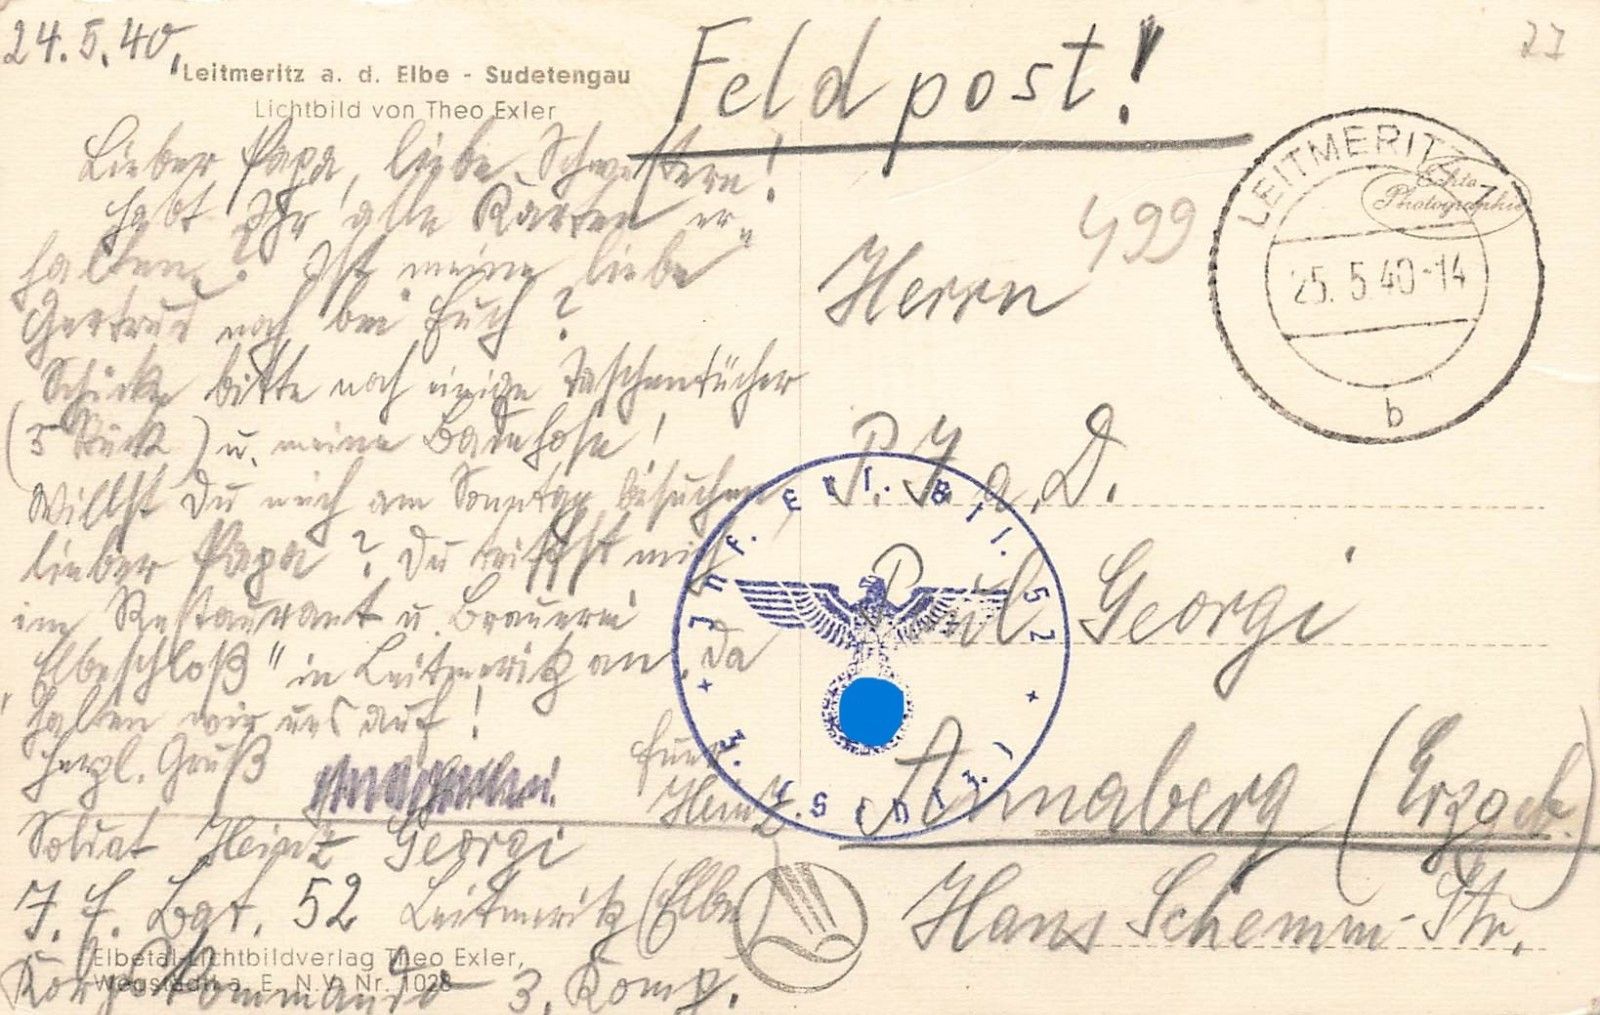 24.5.40.
Leitmeritz a. d. Elbe - Sudetengau
Lichtbild von Theo Exler
Feldpost!
27
Lieber Papa, liebe Schwestern!
Habt Ihr alle Karten er-
halten? Ist meine liebe
Gertrud noch bei Euch?
Schicke bitte noch einige Taschentücher
(5 Stück) u. meine Badehose!
Willst Du mich am Sonntag besuchen
lieber Papa? Du triffst mich
im Restaurant u. Brauerei
"Elbeschloß" in Leitmeritz an, da
halten wir uns auf!
Herzl. Gruß
Euer
Heinz.
Soldat Heinz Georgi
J. E. Bat. 52 Leitmeritz (Elbe)
3. Komp.
Elbetal-Lichtbildverlag Theo Exler,
Wegstädtl a. E. N.V. Nr. 1028
LEITMERITZ
25.5.40-14
b
Echte
Photographie
499
Herrn
P. J. a. D.
Paul Georgi
Annaberg (Erzgeb.)
Hans Schemm-Str.
Inf. Ers. Btl. 52